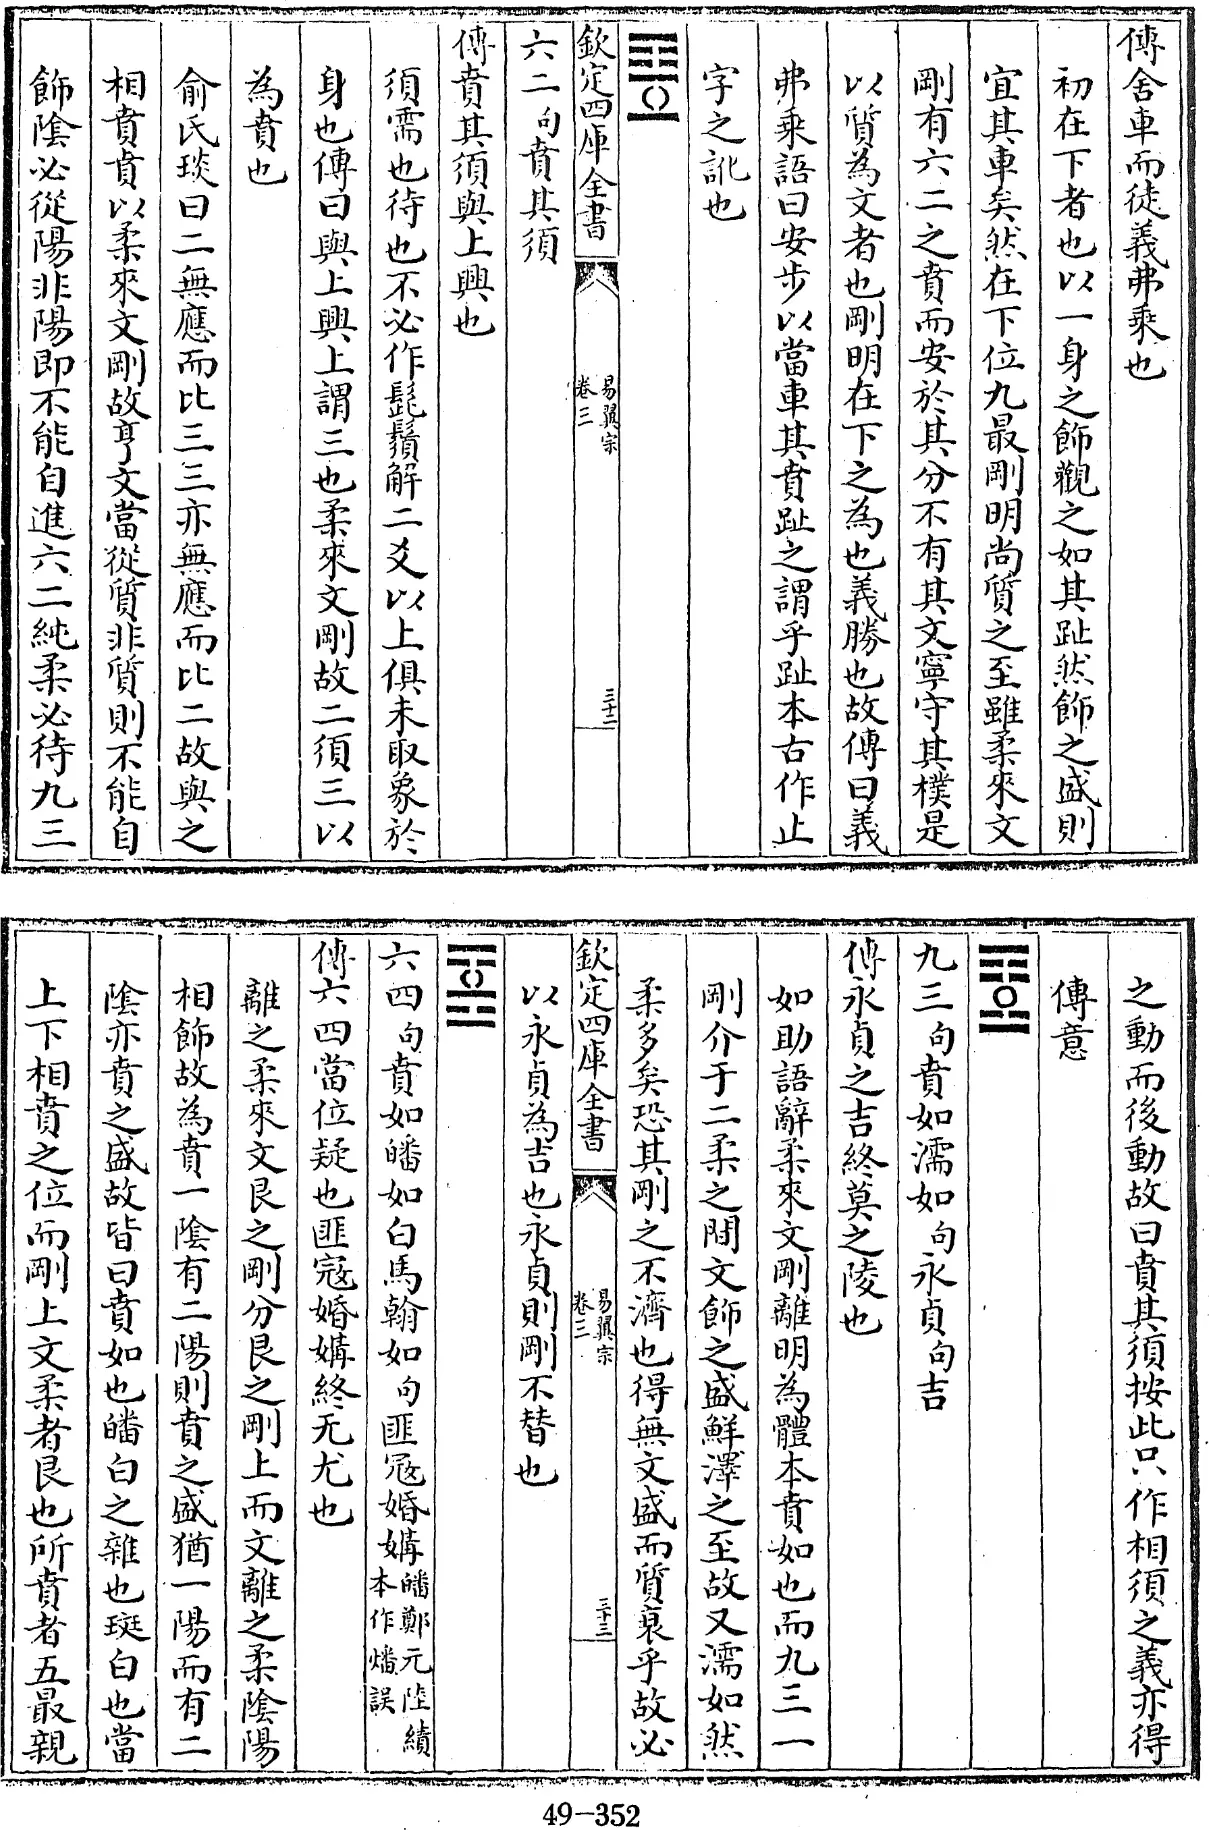 傳舍車而徒義弗乗也
初在下者也以一身之飾觀之如其趾然飾之盛則
宜其車矣然在下位九最剛明尚質之至雖柔來文
剛有六二之賁而安於其分不有其文寧守其樸是
以質為文者也剛明在下之為也義勝也故傳曰義
弗乗語曰安步以當車其賁趾之謂乎趾本古作止
字之訛也
欽定四庫全書
易翼宗
卷三
三十二
六二句賁其須
傳賁其須與上興也
須需也待也不必作髭鬚解二爻以上俱未取象於
身也傳曰與上興上謂三也柔來文剛故二須三以
為賁也
俞氏琰曰二無應而比三三亦無應而比二故與之
相賁賁以柔來文剛故亨文當從質非質則不能自
飾陰必從陽非陽即不能自進六二純柔必待九三
之動而後動故曰賁其須按此只作相須之義亦得
傳意
九三句賁如濡如句永貞句吉
傳永貞之吉終莫之陵也
如助語辭柔來文剛離明為體本賁如也而九三一
剛介于二柔之間文飾之盛鮮澤之至故又濡如然
柔多矣恐其剛之不濟也得無文盛而質衰乎故必
欽定四庫全書
易翼宗
卷三
三十三
以永貞為吉也永貞則剛不替也
六四句賁如皤如白馬翰如句匪冦婚媾皤鄭元陸績本作燔誤
傳六四當位疑也匪冦婚媾終无尤也
離之柔來文艮之剛分艮之剛上而文離之柔陰陽
相飾故為賁一陰有二陽則賁之盛猶一陽而有二
陰亦賁之盛故皆曰賁如也皤白之雜也斑白也當
上下相賁之位而剛上文柔者艮也所賁者五最親
49-352